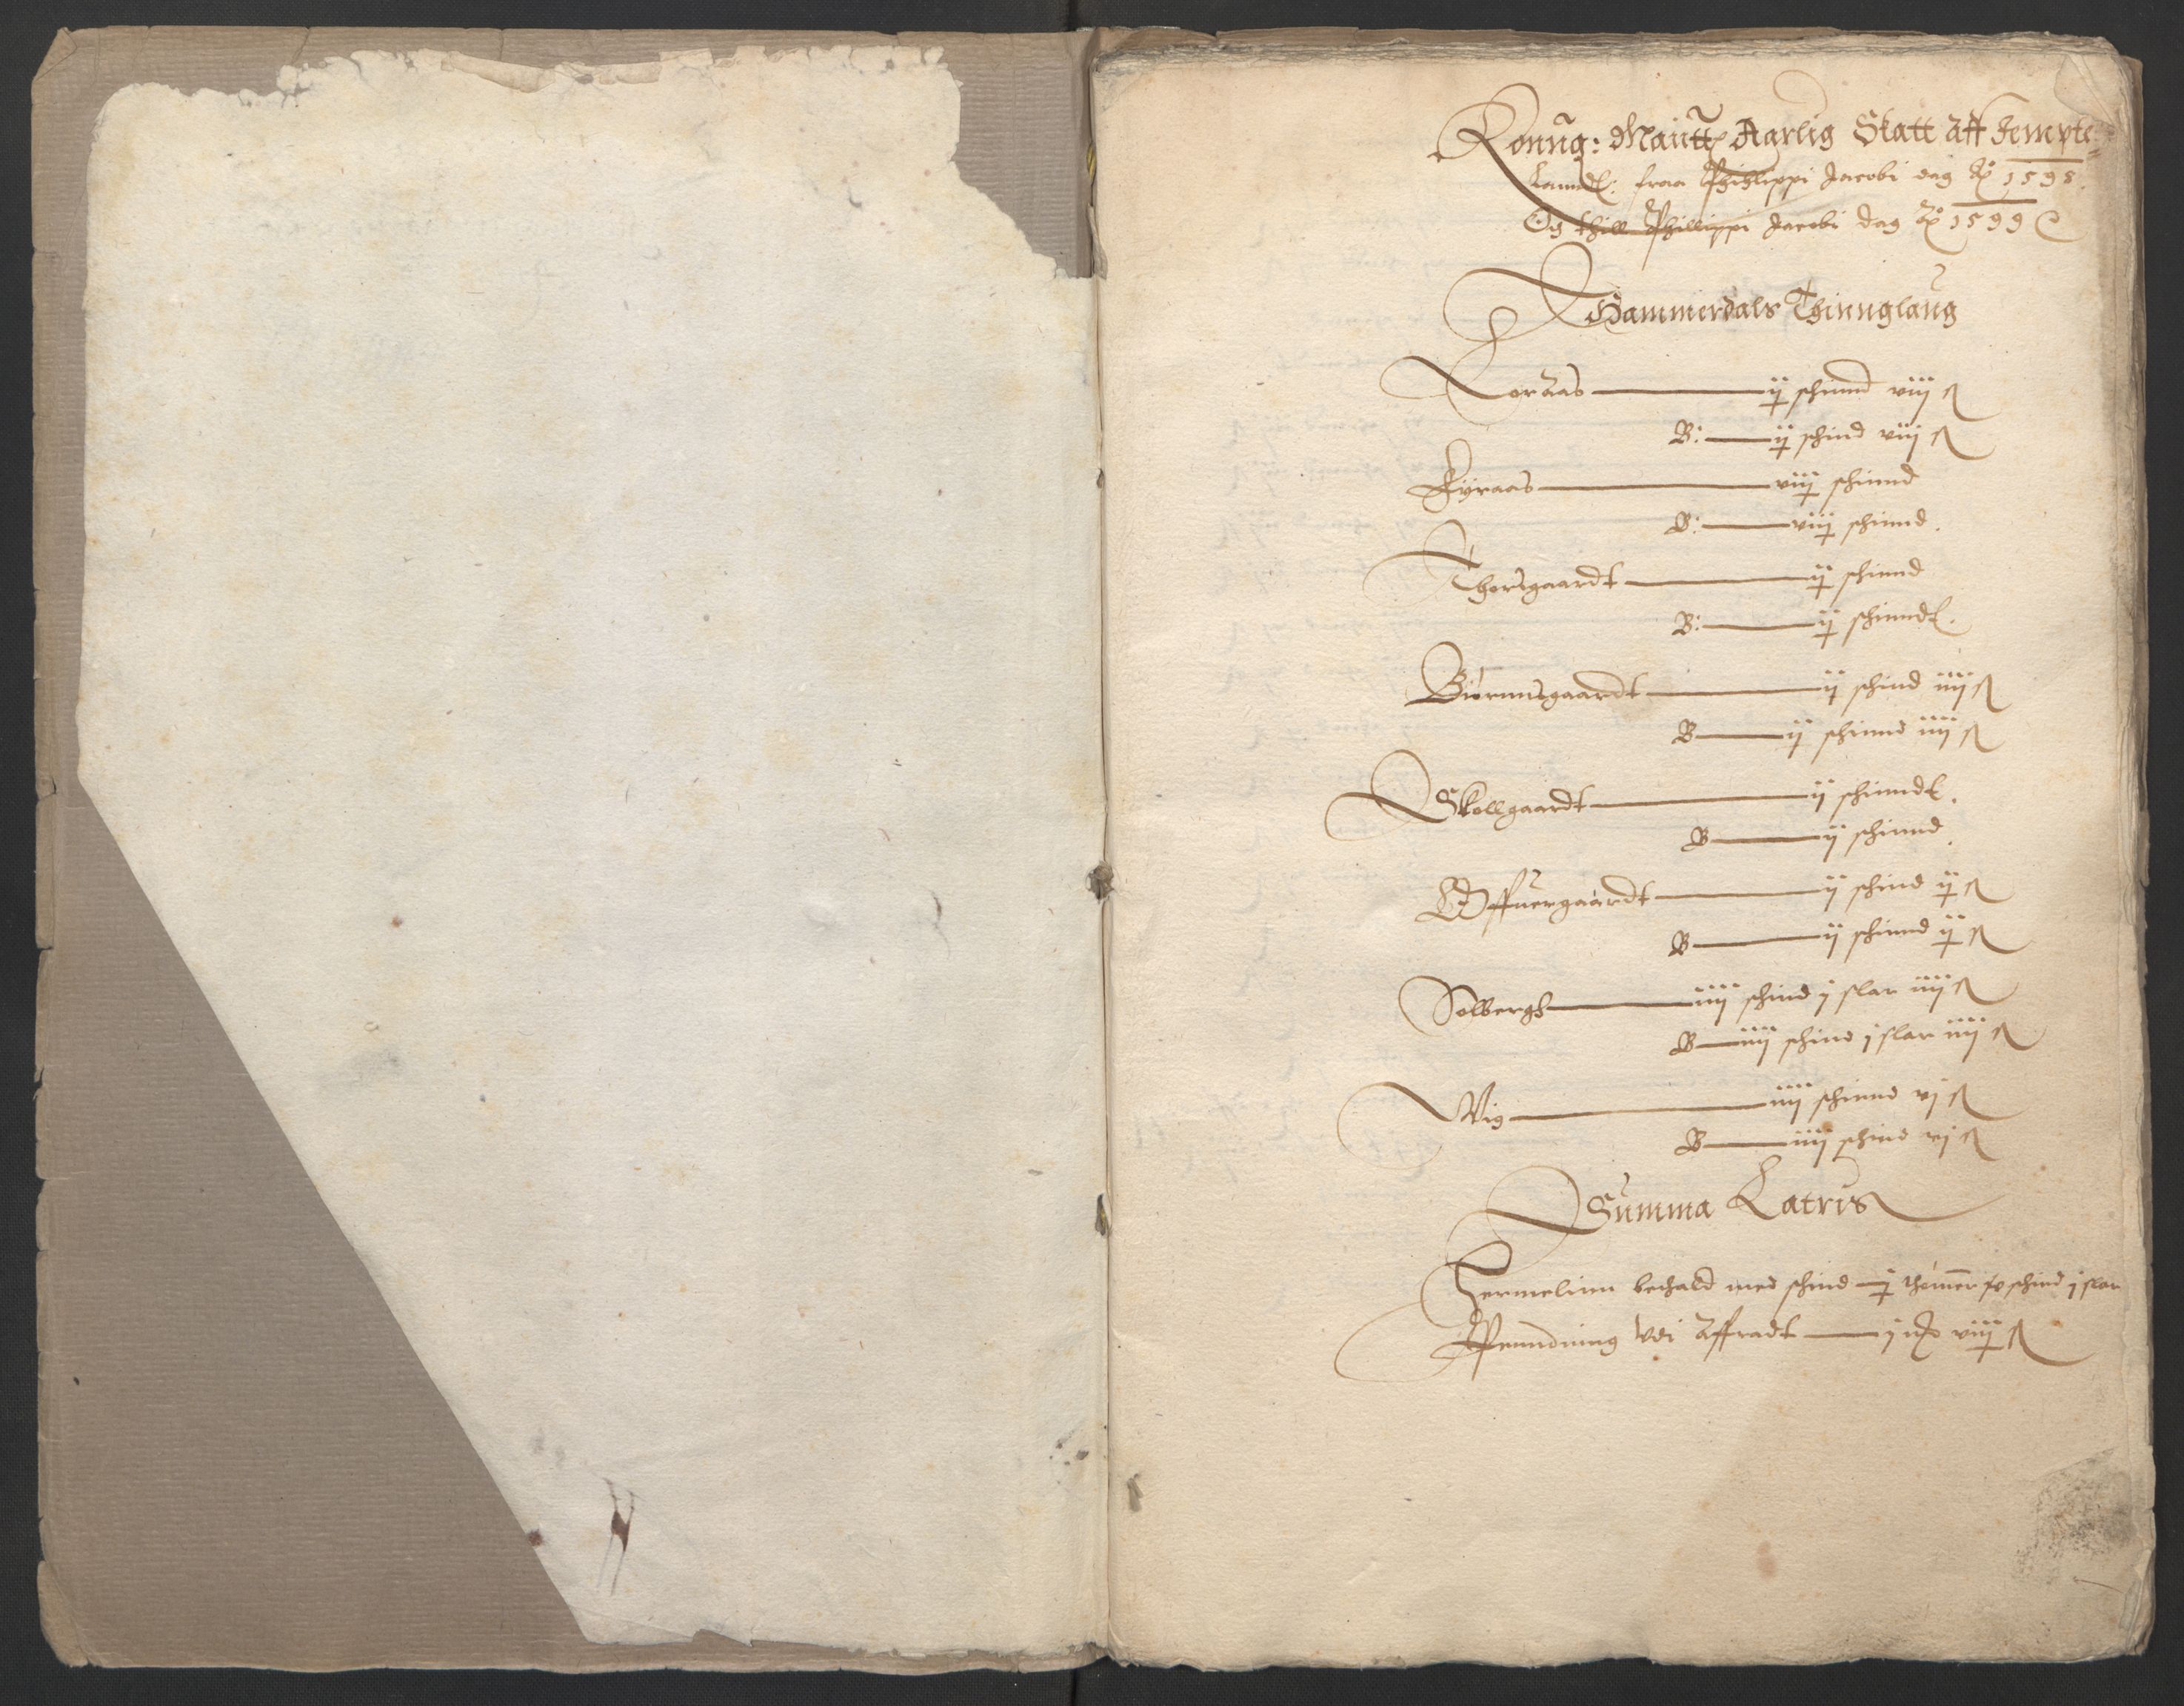 Konng: Maÿtts Aarlig Skatt aff Jempte=
Lanndt: fraa Philippi Jacobi dag Ao 1598.
Og thill Phillippi Jacobi dag Ao 1599
Hammerdals Thinnglaug
Loraas ij schinnd viij ß
B: ij schind viij ß
Fÿraas viij schinnd
B: viij schinnd.
Thorsgaardt ij schinnd
B: ij schinndt.
Biørnnsgaardt ij schind iiij ß
B ij schinnd iiij ß
Skollgaardt ij schinndt.
B ij schinnd.
Offuergaardt ij schind ij ß
B ij schinnd ij ß
Solbergh iiij schind j klar iiij ß
B iiij schind j klar iiij ß
Wig iiij schinnd vj ß
B iiij schind vj ß
Summa Latris
Hermelinn bethald med schind j thømer schind j klar
Penndning vdi affradt j viij ß